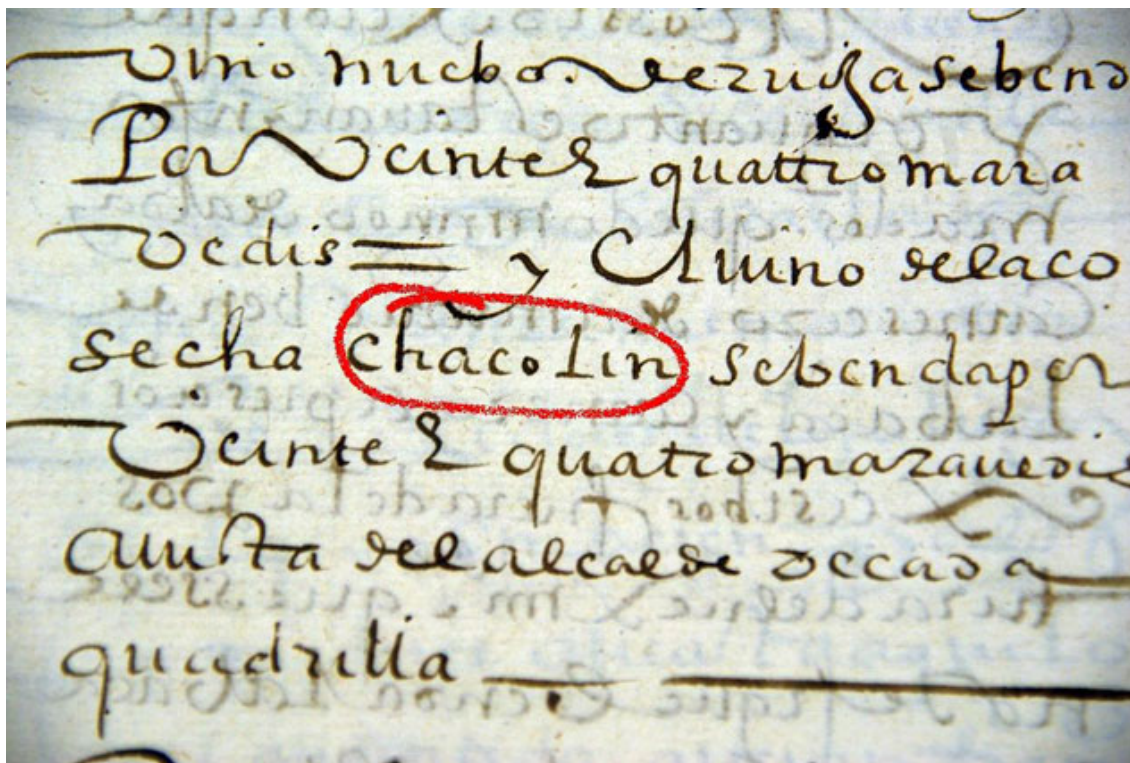 Vino nuebo. de zuiga se bend
Por Veinte & quattro mara
Vedis = y El uino de la co
secha chacolin se benda por
Veinte & quatro marauedis
a uista del alcalde de cada
quadrilla